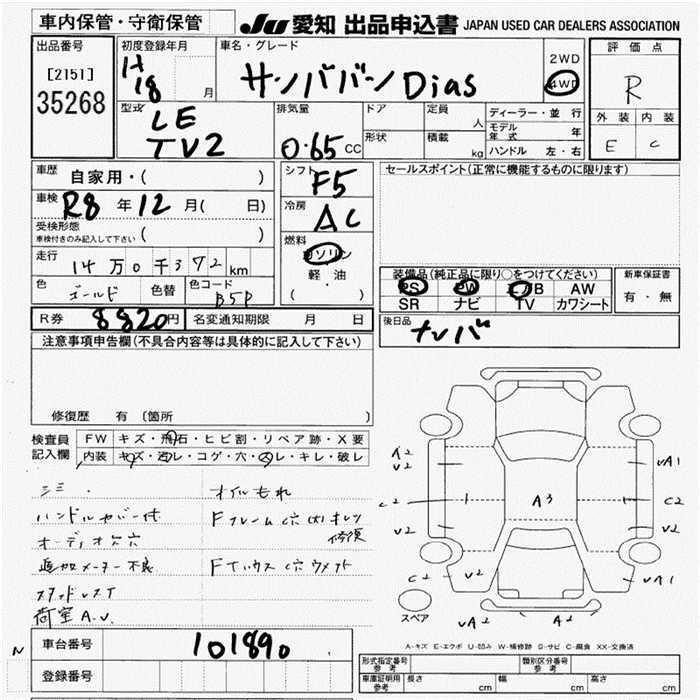 車内保管・守衛保管
JU 愛知 出品申込書 JAPAN USED CAR DEALERS ASSOCIATION
出品番号
[2151]
35268
初度登録年月
H
18
月
車名・グレード
サンババーンDias
2WD
4WD
評価点
R
外装 内装
E C
型式
LE
TV2
排気量
0.65 CC
ドア
形状
定員
人
積載
kg
ディーラー・並行
モデル年式 年
ハンドル 左・右
車歴
自家用・( )
車検
R8 年 12 月( 日)
受検形態
車検付きのみ記入して下さい ( )
走行
14万0千372km
色
ゴールド
色替
色コード
B5P
シフト
F5
冷房
AC
燃料
ガソリン
軽・油
( ・ )
セールスポイント(正常に機能するものに限ります)
装備品(純正品に限り○をつけてください)
PS PW エアB AW
SR ナビ TV カワシート
新車保証書
有・無
R券 8820円 名変通知期限 月 日
後日品
ナンバ
注意事項申告欄(不具合内容等は具体的に記入して下さい)
修復歴 有 〔箇所
検査員
記入欄
FW キズ・飛石・ヒビ割・リペア跡・X要
内装 キズ・汚レ・コゲ・穴・スレ・キレ・破レ
シミ.
ハンドルカバー付
オーディオ穴
追加メーター不良
スタッドレスT
荷室A.U.
オイルもれ
Fフレーム穴
修復
A2
V2
C2
V2
C2
V2
A3
VA1
C2
V2
VA1
VA2
A2
スペア
A-キズ E-エクボ U-凹み W-補修跡 S-サビ C-腐食 XX-交換済
N
車台番号 101890
登録番号
形式指定番号
参考
類別区分番号
参考
車庫証明用
参考
長さ cm
幅 cm
高さ cm